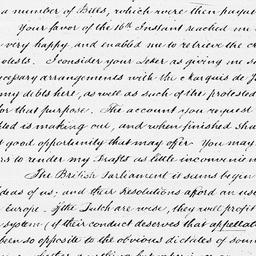 a number of Bills, which were then payab
Your favor of the 16th Instant reached me
very happy and enabled me to retrieve the cr
otests. I consider your Letter as giving me
necessary arrangements with the Marquis de
my debts here, as well as such of the protested
for that purpose. The account you request
ted is making out, and when finished sha
t good opportunity that may offer You may
rs to render my Drafts as little inconvenien
The British Parliament it seems begin
ideas of us, and their Resolutions afford an use
Europe. If the Dutch are wise, they will profit
system (if their conduct deserves that appellat
been so opposite to the obvious dictates of soun